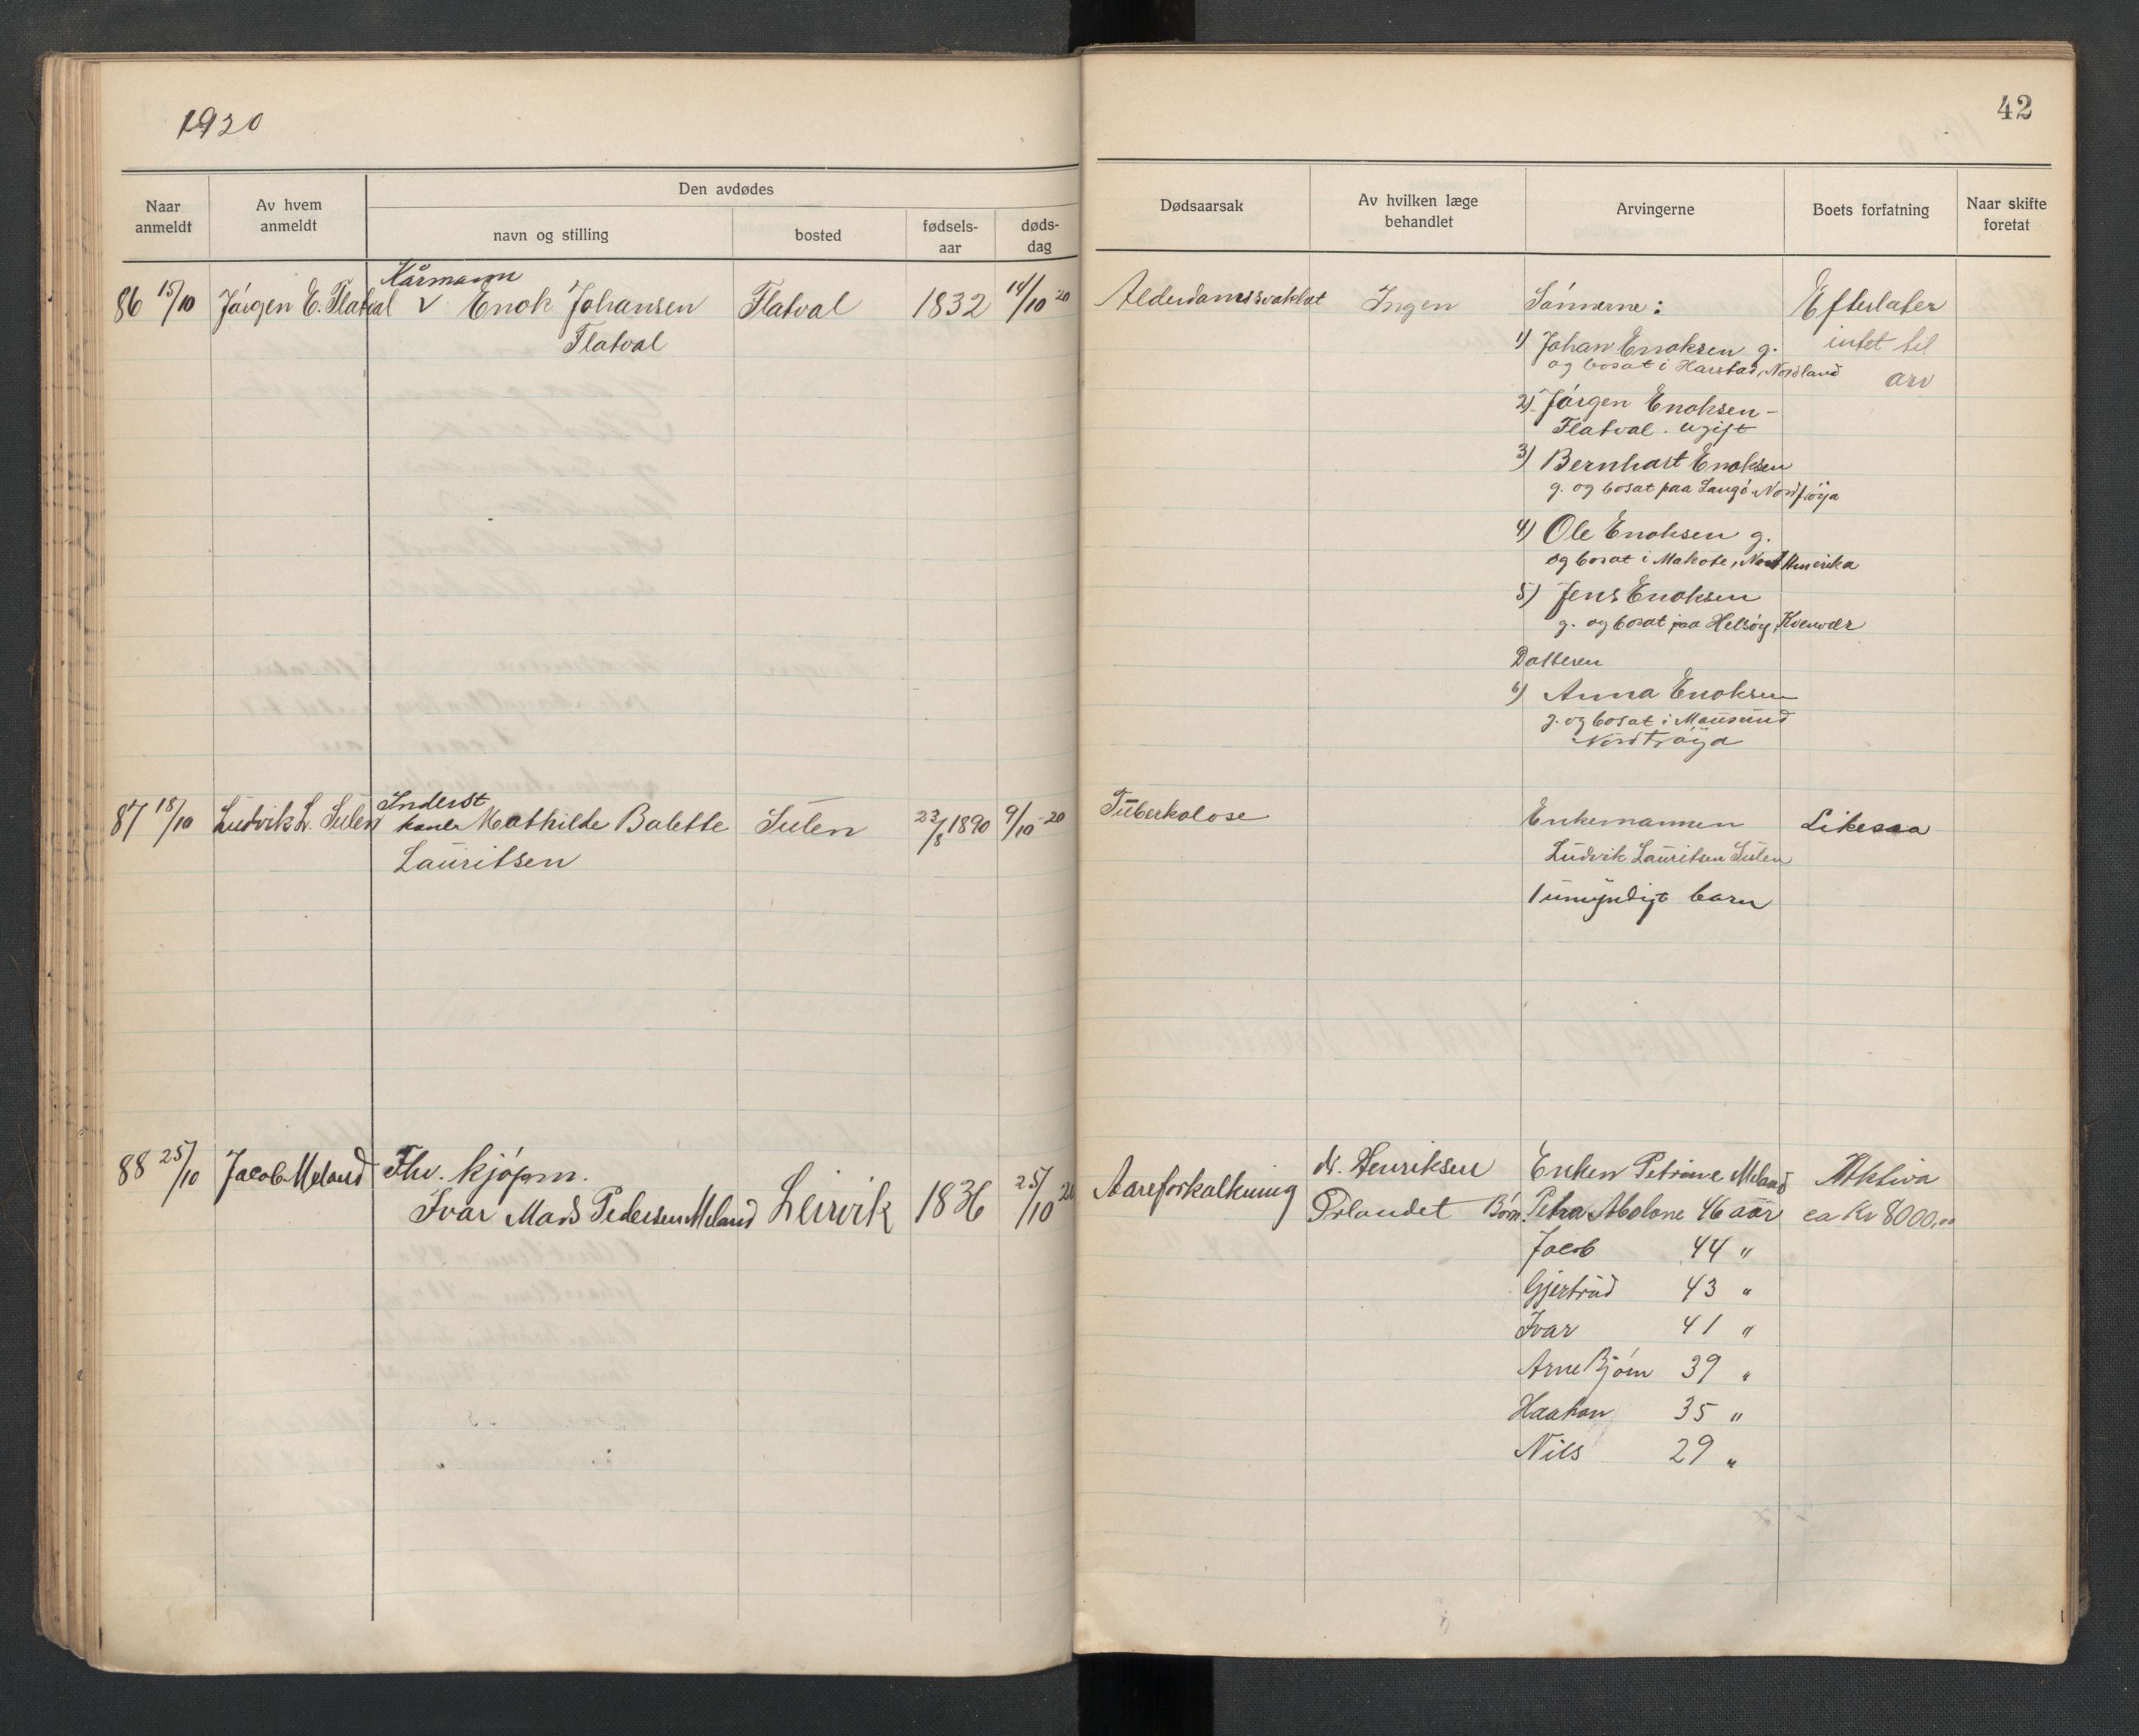 1920
42
Naar anmeldt
Av hvem anmeldt
Den avdødes
navn og stilling
bosted
fødsels-aar
døds-dag
Dødsaarsak
Av hvilken læge behandlet
Arvingerne
Boets forfatning
Naar skifte foretat
Kårmann
86 15/10 Jørgen E. Flatval v Enok Johansen Flatval 1832 14/10 20 Alderdomssvakhet Ingen Sönnerne: Efterlater
Flatval
1) Johan Enoksen g. intet til
og bosat i Harstad, Nordland arv
2) Jörgen Enoksen-
Flatval. ugift
3) Bernhart Enoksen
g. og bosat paa Langö Nordfröya
4) Ole Enoksen g.
og bosat i Makote, Nord Amerika
5) Jens Enoksen
g. og bosat paa Helsöy, Kvenvær
Datteren
6) Anna Enoksen
g. og bosat i Mausund
Nordfröya
Inderst
87 18/10 Ludvik L. Sulen kone Mathilde Balette Sulen 23/8 1890 9/10-20 Tuberkolose Enkemannen Likesaa
Lauritsen Ludvik Lauritsen Sulen
1 umyndigt barn
88 25/10 Jacob Meland Fhv. kjöpm. dr. Henriksen Enken Petrine Meland Aktiva
Ivar Mads Pedersen Meland Leirvik 1836 25/10 20 Aareforkalkning Örlandet Börn: Petra Abolone 46 aar ca Kr 8000,00
Jacob 44 "
Gjertrud 43 "
Ivar 41 "
Arne Bjórn 39 "
Haakon 35 "
Nils 29 "